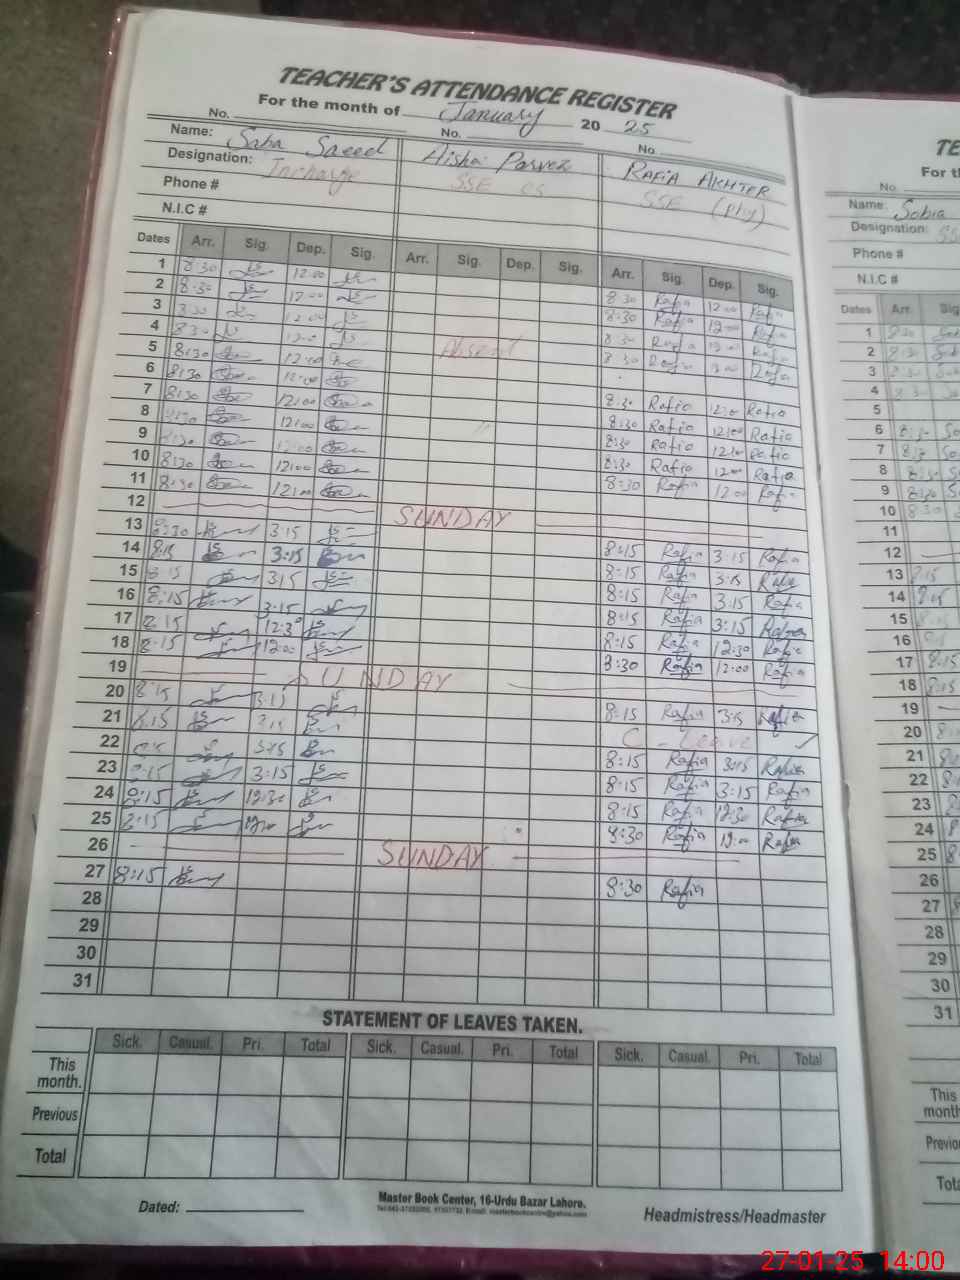 TEACHER'S ATTENDANCE REGISTER
For the month of January 20 25
No. No. No.
Name: Saba Saeed Aisha Parvez RAFIA AKHTER
Designation: Incharge SSE CS SSE (Phy)
Phone #
N.I.C #
Dates Arr. Sig. Dep. Sig. Arr. Sig. Dep. Sig. Arr. Sig. Dep. Sig.
1 8:30 12:00 8:30 Rafia 12:00 Rafia
2 8:30 12:00 8:30 Rafia 12:00 Rafia
3 8:30 12:00 8:30 Rafia 12:00 Rafia
4 8:30 12:00 Absent 8:30 Rafia 12:00 Rafia
5 8:30 12:00
6 8:30 12:00 8:30 Rafia 12:00 Rafia
7 8:30 12:00 8:30 Rafia 12:00 Rafia
8 8:30 12:00 8:30 Rafia 12:00 Rafia
9 8:30 12:00 8:30 Rafia 12:00 Rafia
10 8:30 12:00 8:30 Rafia 12:00 Rafia
11 8:30 12:00
12 SUNDAY
13 8:30 3:15 8:15 Rafia 3:15 Rafia
14 8:15 3:15 8:15 Rafia 3:15 Rafia
15 8:15 3:15 8:15 Rafia 3:15 Rafia
16 8:15 3:15 8:15 Rafia 3:15 Rafia
17 8:15 12:30 8:15 Rafia 12:30 Rafia
18 8:15 12:00 8:30 Rafia 12:00 Rafia
19 SUNDAY
20 8:15 3:15 8:15 Rafia 3:15 Rafia
21 8:15 3:15 C - Leave
22 8:15 3:15 8:15 Rafia 3:15 Rafia
23 8:15 3:15 8:15 Rafia 3:15 Rafia
24 8:15 12:30 8:15 Rafia 12:30 Rafia
25 8:15 12:00 8:30 Rafia 12:00 Rafia
26 SUNDAY
27 8:15 8:30 Rafia
28
29
30
31
STATEMENT OF LEAVES TAKEN.
Sick. Casual. Pri. Total Sick. Casual. Pri. Total Sick. Casual. Pri. Total
This month.
Previous
Total
Dated:
Master Book Center, 16-Urdu Bazar Lahore.
Headmistress/Headmaster
TE
For th
No.
Name: Sobia
Designation: SS
Phone #
N.I.C #
Dates Arr Sig
1 8:30
2 8:30
3 8:30
4 8:30
5
6 8:30
7 8:30
8 8:30
9 8:30
10 8:30
11
12
13 8:15
14 8:15
15 8:15
16
17 8:15
18 8:15
19
20
21
22
23
24
25
26
27
28
29
30
31
This
month
Previo
Tota
27-01-25 14:00